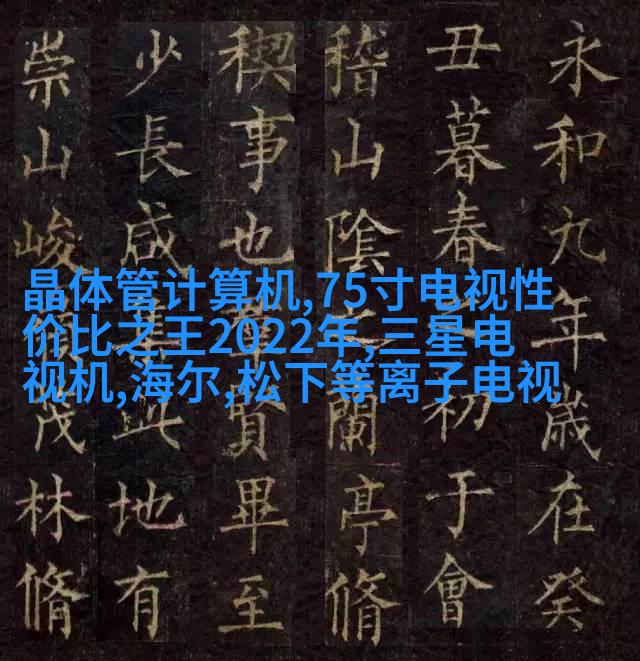 永和九年歳在癸
丑暮春初于會
稽山陰之蘭亭脩
稧事也羣賢畢至
少長咸集此地有
崇山峻茂林脩
晶体管计算机,75寸电视性
价比之王2022年,三星电
视机,海尔,松下等离子电视